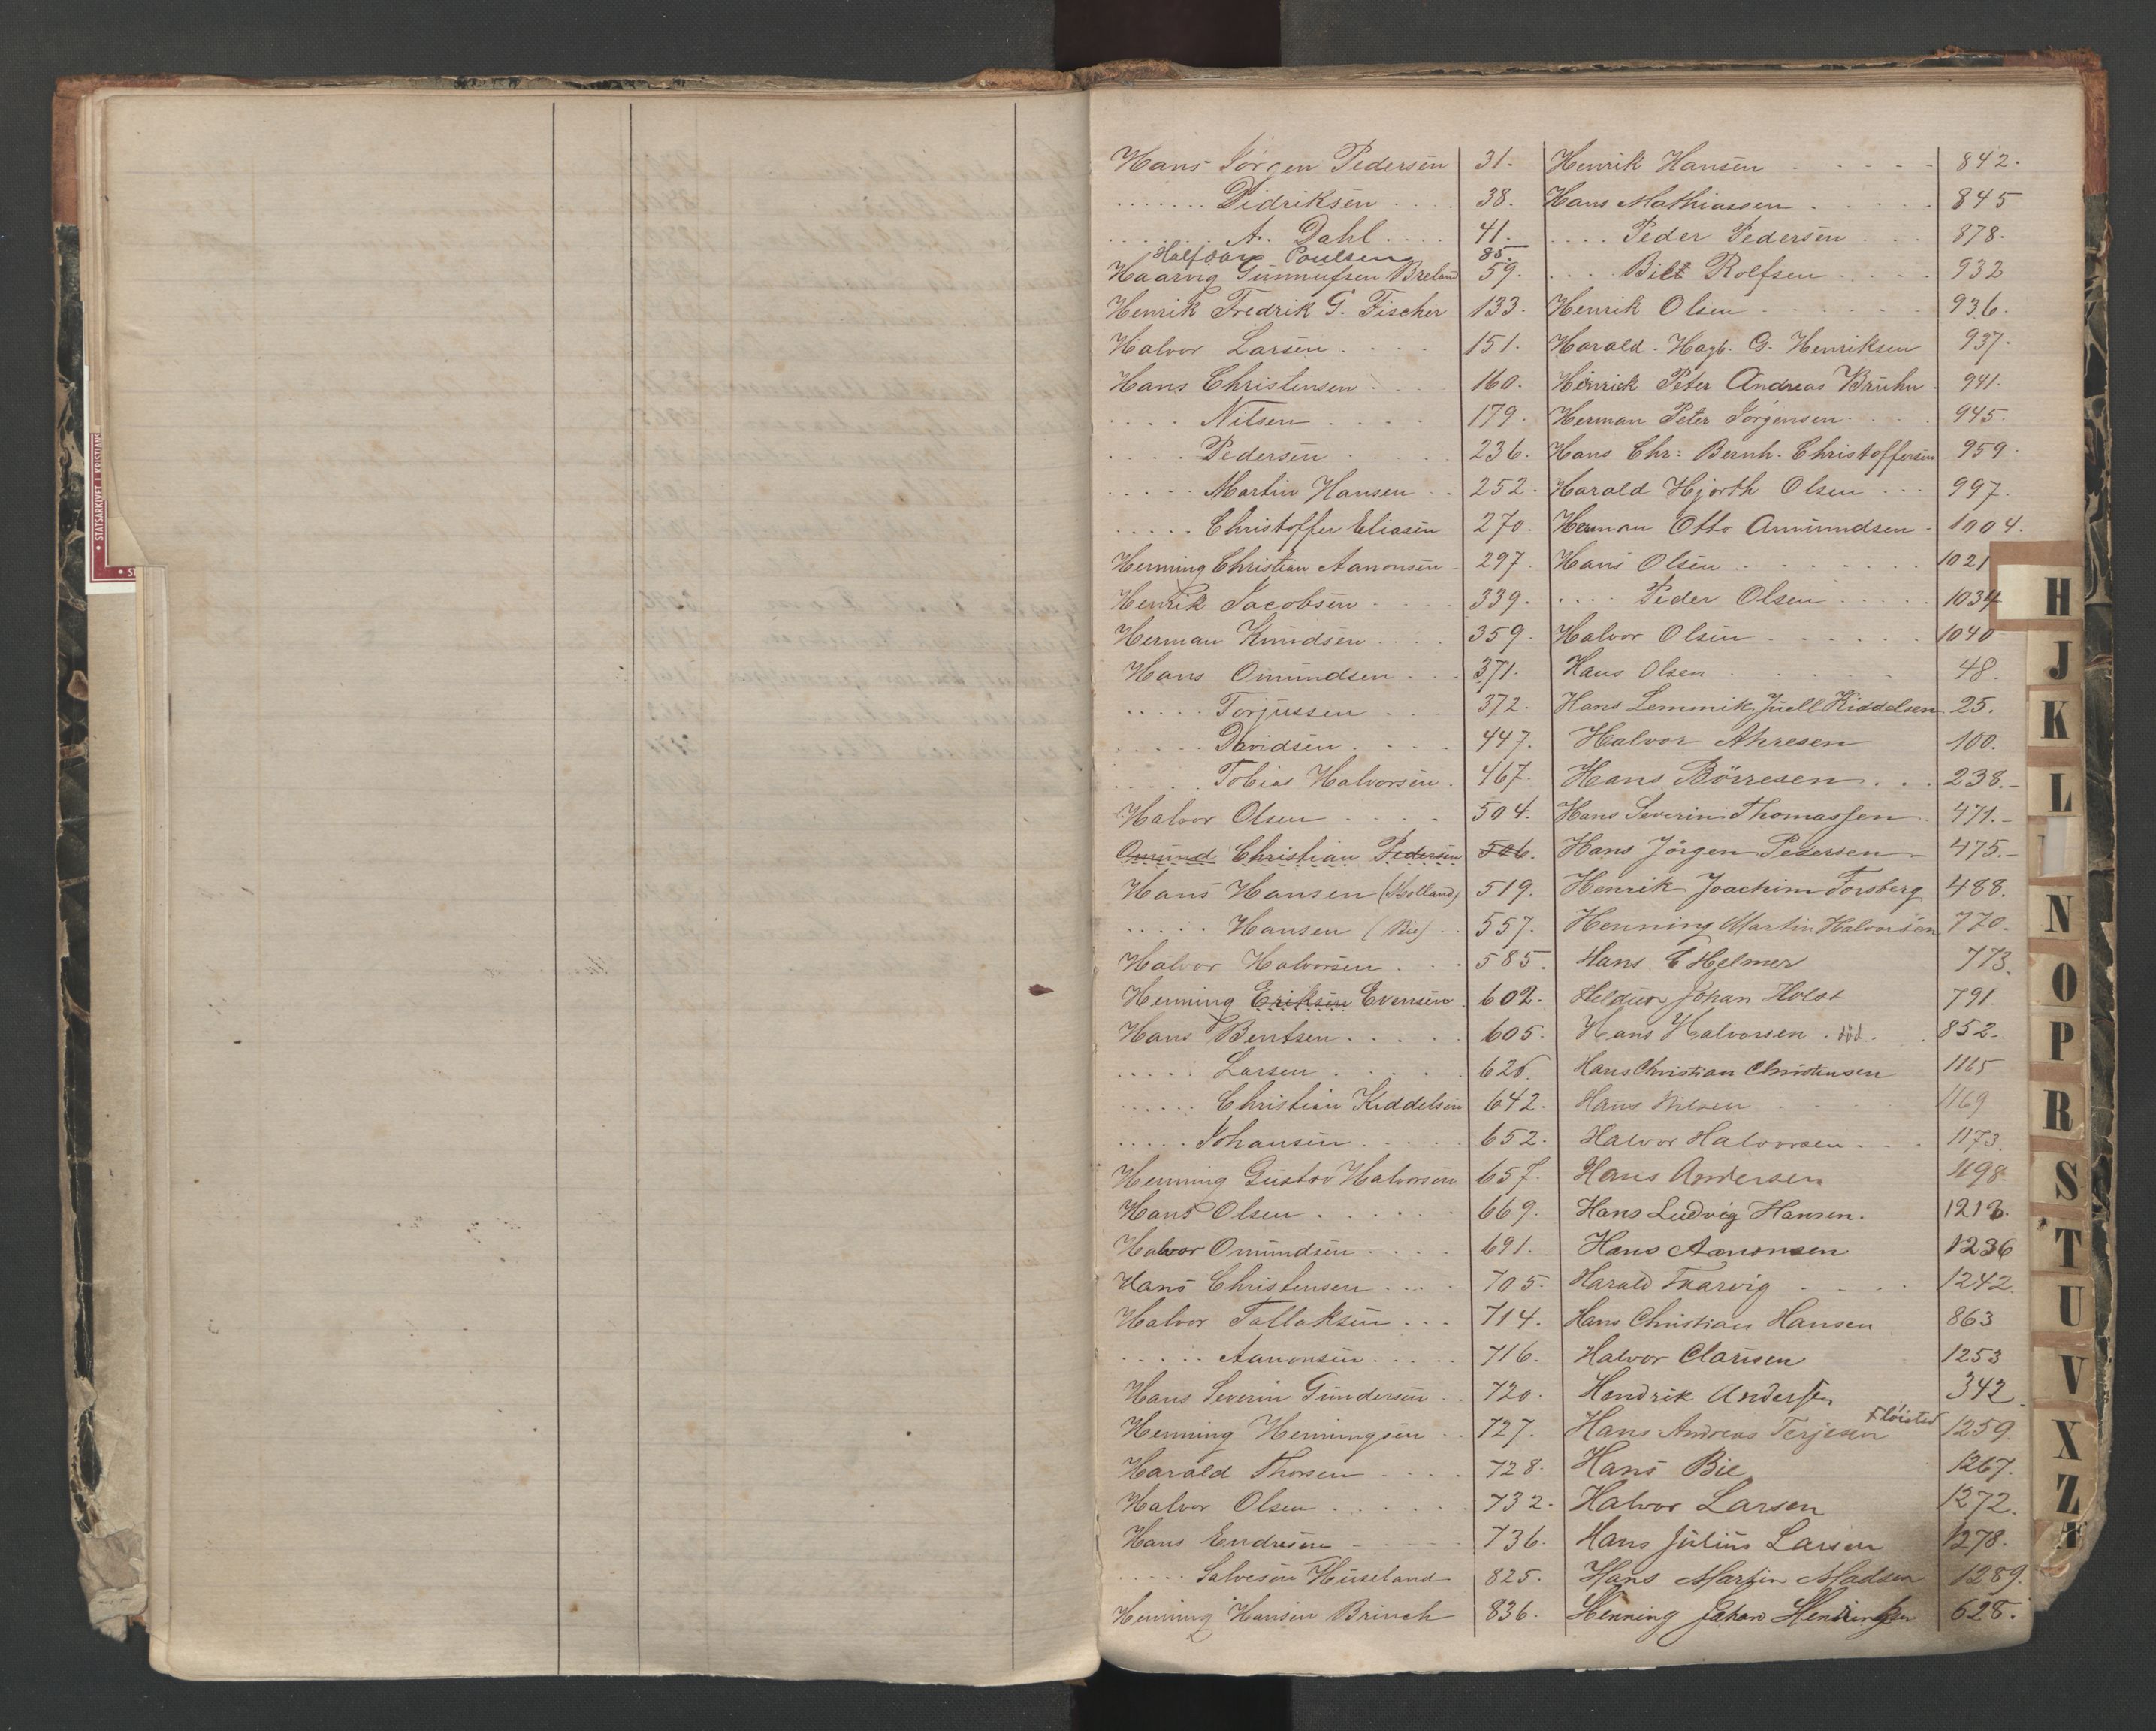 Hans Jörgen Pedersen 31.
....... Didriksen .... 38.
....... A. Dahl .... 41.
Halfdan Poulsen 85.
Haarvig Gunnufsen Breland 59.
Henrik Fredrik G. Fischer 133.
Halvor Larsen .... 151.
Hans Christensen .... 160.
.... Nilsen .... 179.
.... Pedersen .... 236.
..... Martin Hansen .. 252.
..... Christoffer Eliasen 270.
Henning Christian Aanonsen 297.
Henrik Jacobsen .... 339.
Herman Knudsen .... 359.
Hans Omundsen ... 371.
..... Torjussen ... 372.
..... Davidsen .... 447.
..... Tobias Halvorsen . 467.
Halvor Olsen .... 504.
Omund Christian Pedersen 506.
Hans Hansen (Molland) 519.
..... Hansen (Bie) .. 557.
Halvor Halvorsen ... 585.
Henning Eriksen Evensen . 602.
Hans Bentsen ..... 605.
..... Larsen ..... 626.
...... Christian Kiddelsen 642.
..... Johansen ..... 652.
Henning Gustav Halvorsen 657.
Hans Olsen ...... 669.
Halvor Omundsen .... 691.
Hans Christensen .... 705.
Halvor Tallaksen ... 714.
..... Aanonsen ..... 716.
Hans Severin Gundersen .. 720.
Henning Henningsen .. 727.
Harald Thorsen .... 728.
Halvor Olsen ...... 732.
Hans Endresen ..... 736.
..... Salvesen Huseland 825.
Henning Hansen Brinch 836.
Henrik Hansen ..... 842.
Hans Mathiassen ..... 845
.... Peder Pedersen ... 878.
... Bilt Rolfsen .... 932
Henrik Olsen ...... 936.
Harald Hagb. G. Henriksen 937.
Hinrick Peter Andreas Bruhn 941.
Herman Peter Jörgensen ... 945.
Hans Chr: Bernh. Christoffersen 959.
Harald Hjorth Olsen ... 997.
Herman Otto Amundsen . 1004.
Hans Olsen ....... 1021
.... Peder Olsen ..... 1034
Halvor Olsen ...... 1040
Hans Olsen ...... 48.
Hans Lemmik Juell Kiddelsen 25.
Halvor Ahresen 100.
Hans Börresen ... 238.-
Hans Severin Thomassen . 471.-
Hans Jörgen Pedersen - 475.-
Henrik Joachim Forsberg 488.
Henning Martin Halvorsen 770.
Hans E Helmer 773.
Heldur Johan Holst 791.
Hans Halvorsen . död. . 852.
Hans Christian Christensen 1165
Hans Nilsen .... 1169
Halvor Halvorsen ... 1173
Hans Andersen 1198.
Hans Ludvig Hansen. 1218.
Hans Aanonsen 1236
Harald Tharvig .... 1242.
Hans Christian Hansen 863
Halvor Clausen 1253
Hendrik Andersen 342.
Hans Andreas Terjesen Fløisted 1259.
Hans Bie 1267.
Halvor Larsen 1272.
Hans Julius Larsen 1278.
Hans Martin Madsen 1289.
Henning Johan Henriksen 628.
H
J
K
L
N
O
P
R
S
T
U
V
X
Z
• STATSARKIVET I KRISTIANS